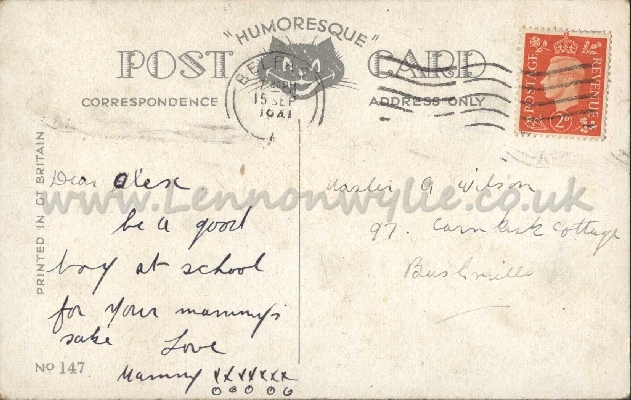 "HUMORESQUE"
POST CARD
CORRESPONDENCE
ADDRESS ONLY
BELFAST
15 SEP
1941
POSTAGE
REVENUE
2D
PRINTED IN GT BRITAIN
www.Lennonwylie.co.uk
Dear Alex
be a good
boy at school
for your mammy's
sake Love
Mammy xxxxxxx
ooooo
Master A Wilson
97. Cottage
Bushmills
No 147